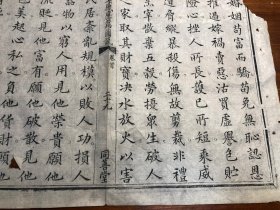 婚姻苟富而驕苟免無恥認恩
推過嫁禍賣惡沽買虛譽包貯
險心挫人所長護己所短乘威
迫脅縱暴殺傷無故剪裁非禮
烹宰散棄五穀勞擾衆生破人
之家取其財寶決水放火以害
三十九
同善堂
民居紊亂規模以敗人功損人
器物以窮人用見他榮貴願他
流貶見他富有願他破散見他
色美起心私之負他貨財願他